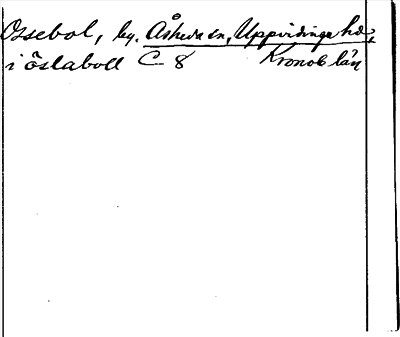 Ossebol, by. Åsheda sn, Uppvidinge hd,
i öslaboll C 8 Kronob län